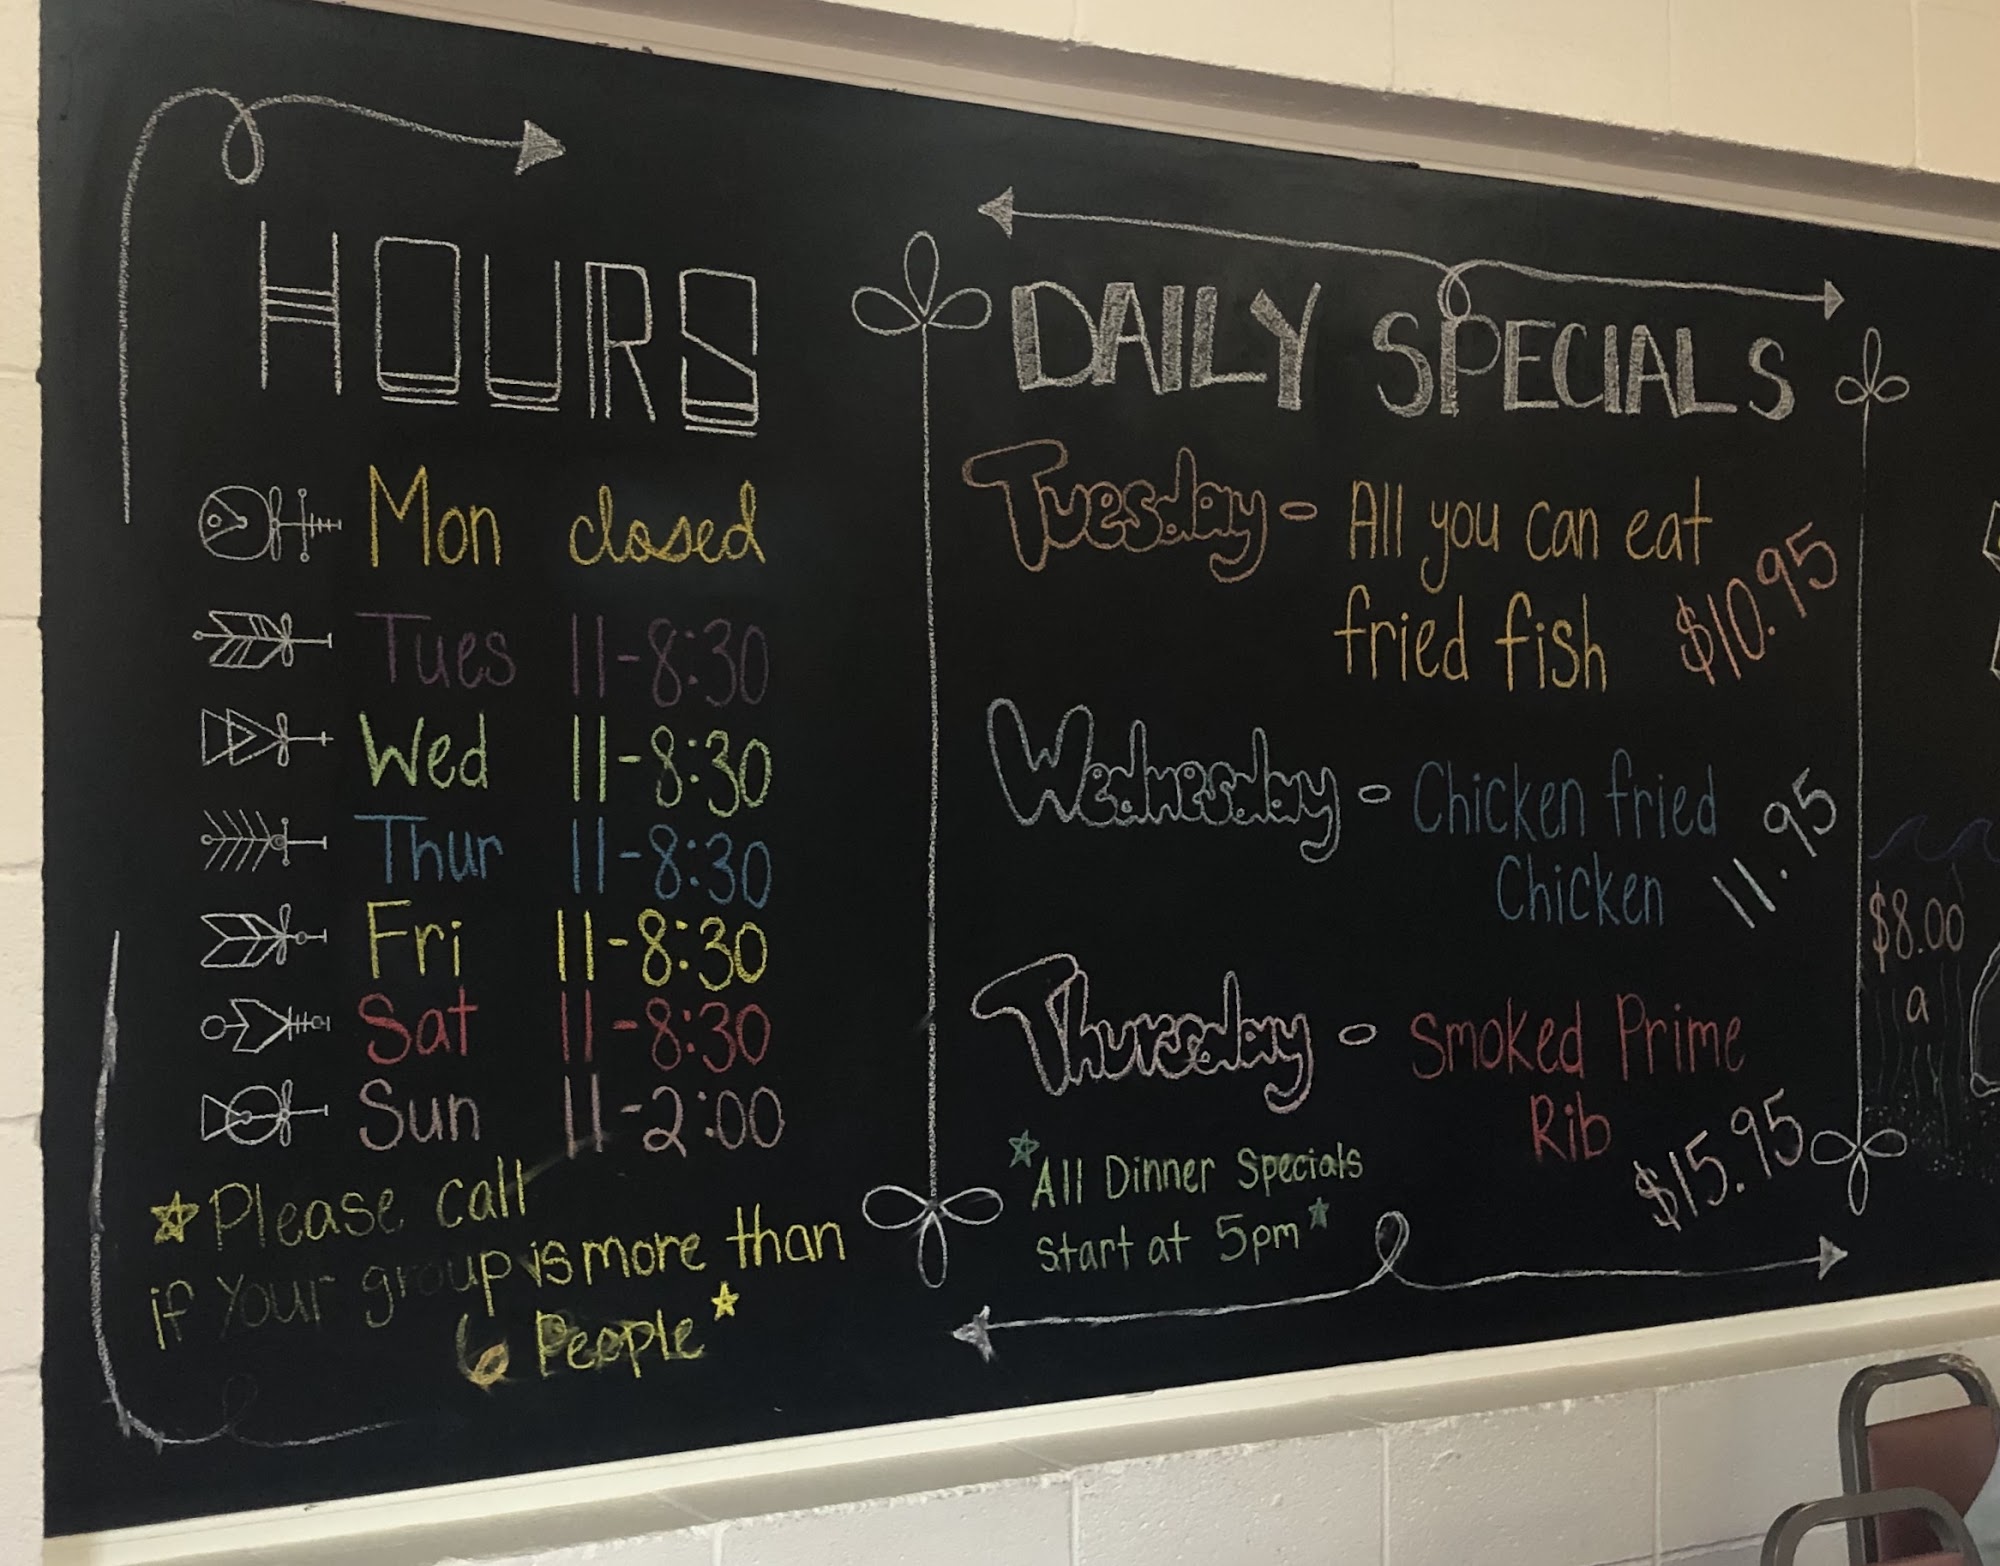 HOURS
Mon closed
Tues 11-8:30
Wed 11-8:30
Thur 11-8:30
Fri 11-8:30
Sat 11-8:30
Sun 11-2:00
Please call
if Your group is more than
6 People
DAILY SPECIALS
Tuesday - All you can eat
fried fish $10.95
Wednesday - Chicken fried
Chicken 11.95
Thursday - Smoked Prime
Rib
$15.95
All Dinner Specials
Start at 5pm
$8.00
a